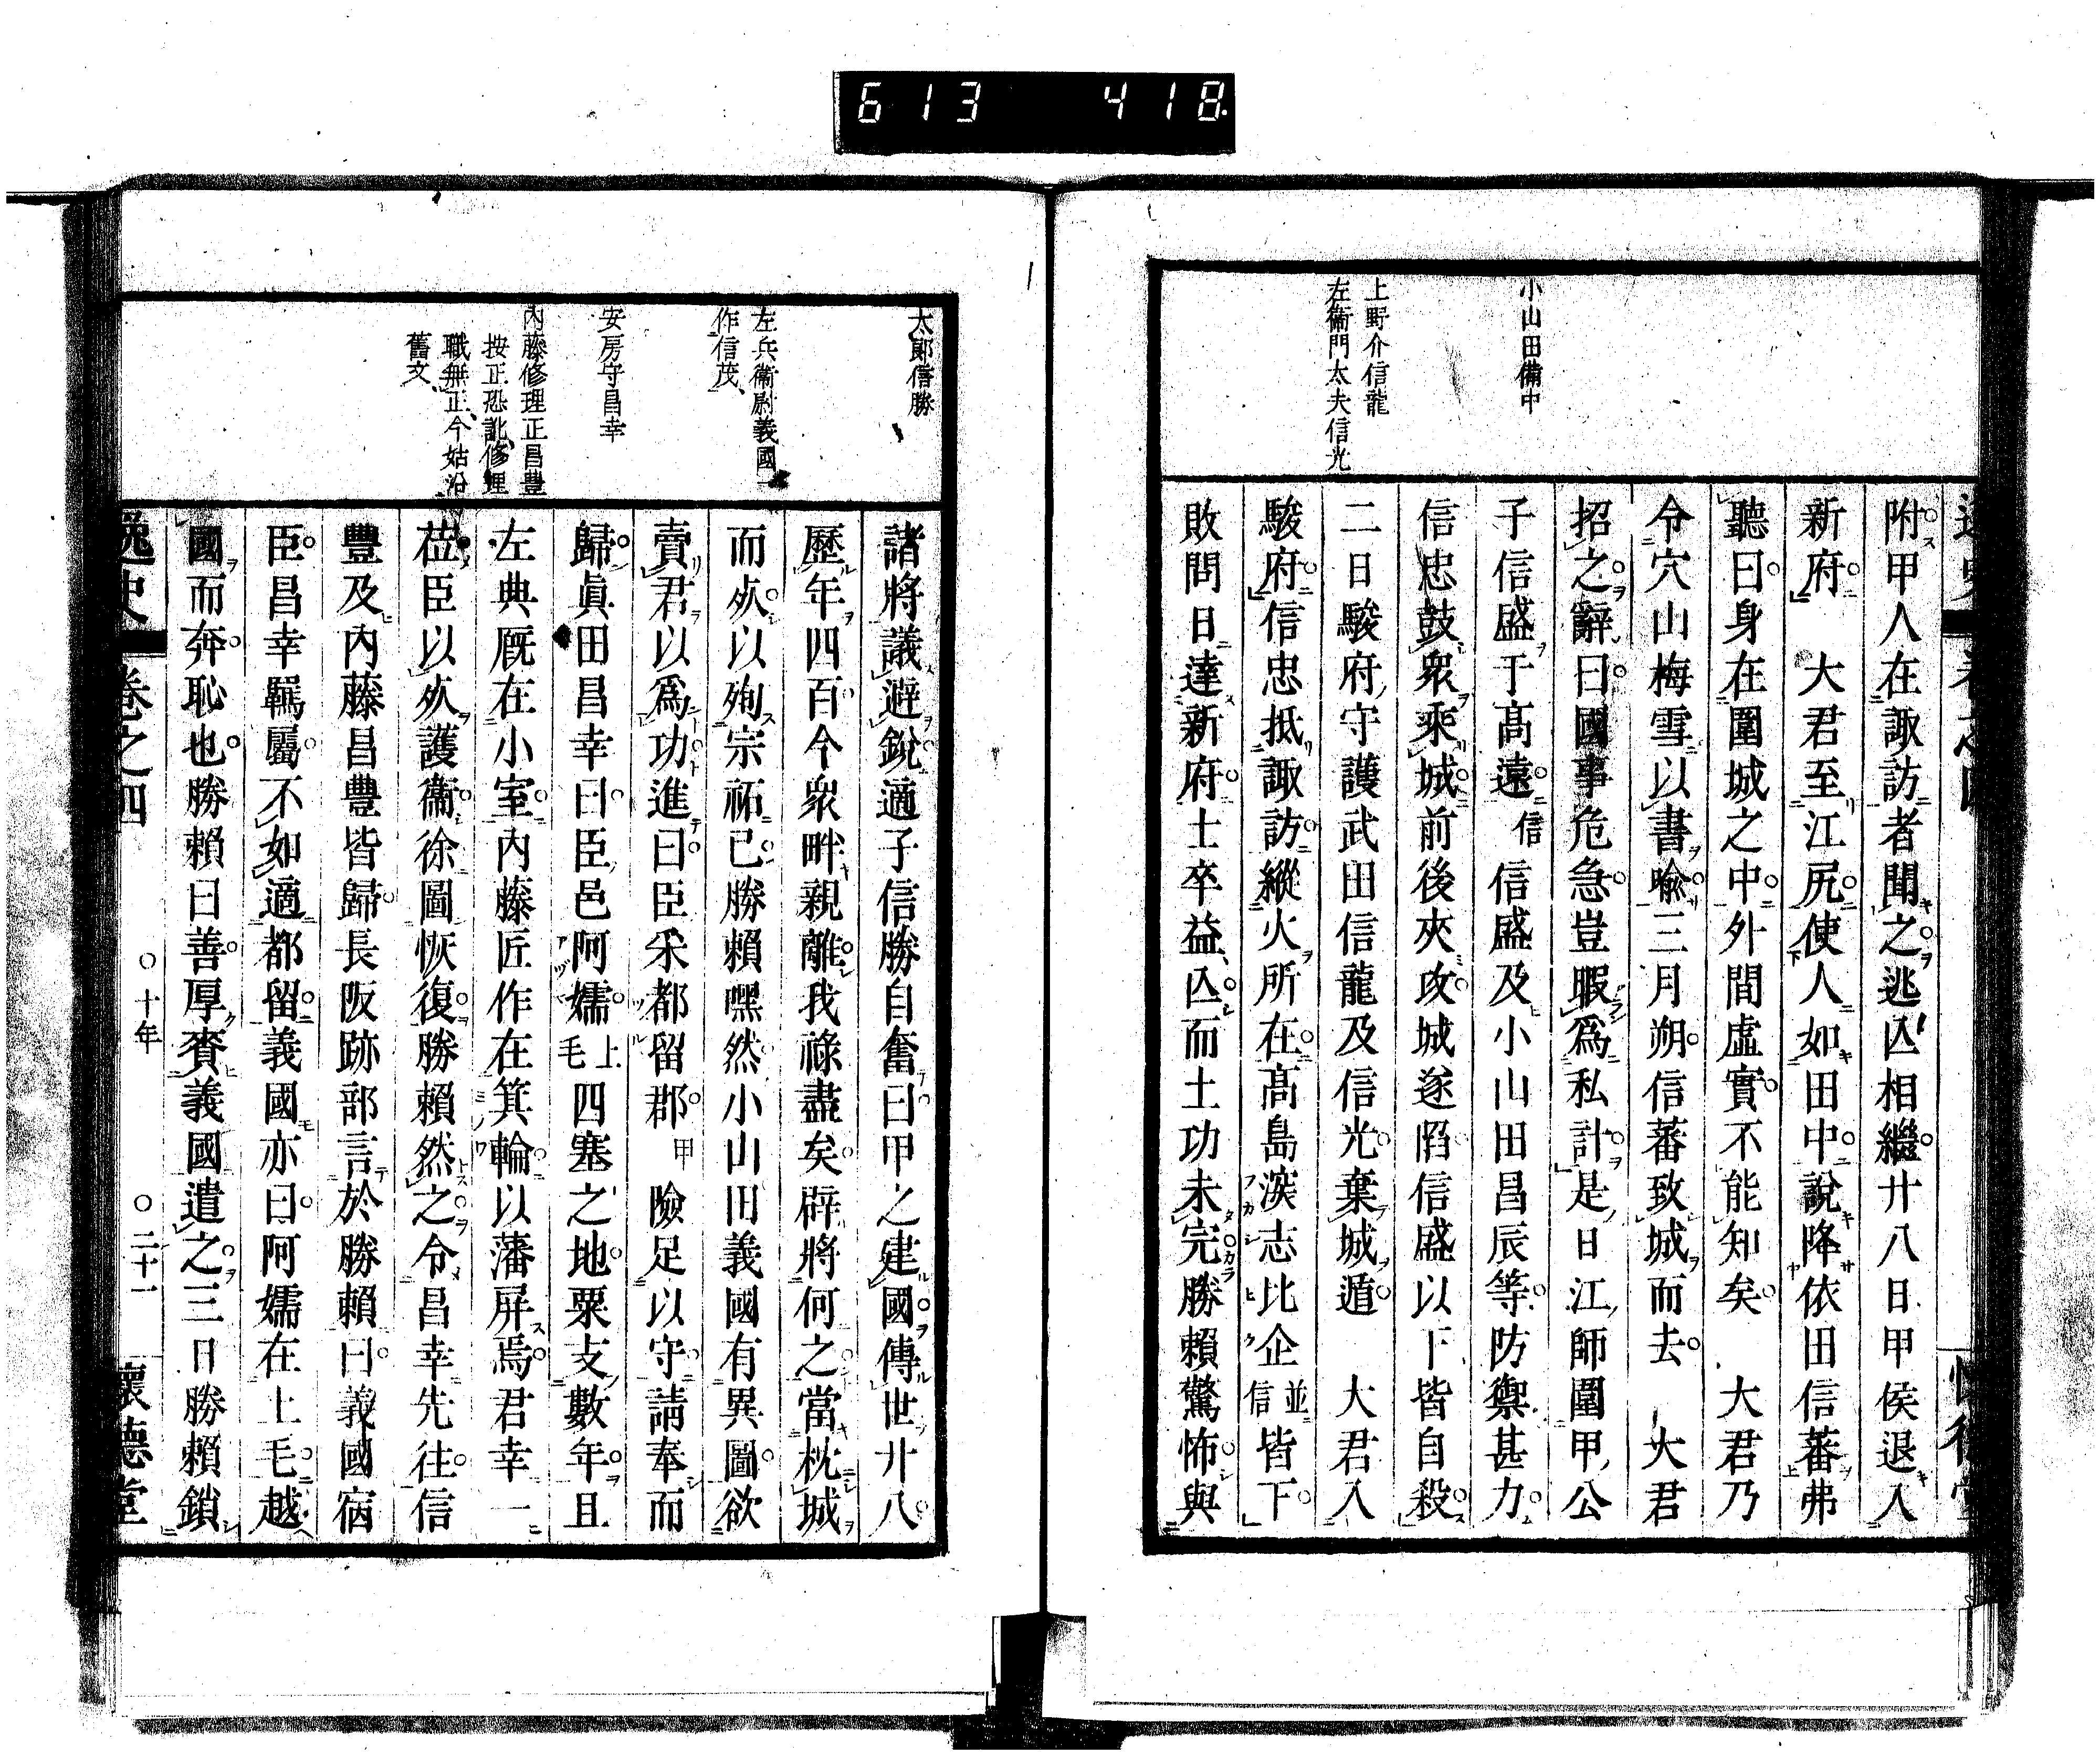 613 418
小山田備中
上野介信龍
左衞門太夫信光
附甲人在諏訪者聞之逃亾相繼廿八日甲侯退入
新府　大君至江尻使人如田中說降依田信蕃弗
聽曰身在圍城之中外間虛實不能知矣　大君乃
令穴山梅雪以書喩三月朔信蕃致城而去　大君
招之辭曰國事危急豈暇爲私計是日江師圍甲公
子信盛于髙遠信信盛及小山田昌辰等防禦甚力
信忠鼓衆乘城前後夾攻城遂䧟信盛以下皆自殺
二日駿府守護武田信龍及信光棄城遁　大君入
駿府信忠抵諏訪縱火所在髙島深志比企並信皆下
敗問日達新府士卒益亾而土功未完勝賴驚怖與
太郞信勝
左兵衞尉義國一
作信茂
安房守昌幸
內藤修理正昌豐
按正恐訛修理
職無正今姑沿
舊文
諸將議避銳適子信勝自奮曰甲之建國傳世廿八
歷年四百今衆畔親離我祿盡矣辟將何之當枕城
而死以殉宗祏已勝賴嘿然小山田義國有異圖欲
賣君以爲功進曰臣釆都留郡甲險足以守請奉而
歸眞田昌幸曰臣邑阿嬬上毛四塞之地粟支數年且
左典厩在小室內藤匠作在箕輪以藩屏焉君幸一
莅臣以死護衞徐圖恢復勝賴然之令昌幸先往信
豐及內藤昌豐皆歸長阪跡部言於勝賴曰義國宿
臣昌幸羈屬不如適都留義國亦曰阿嬬在上毛越
國而奔恥也勝賴曰善厚賚義國遣之三日勝賴鎖
逸史　卷之四　○十年　○二十一　懷德堂